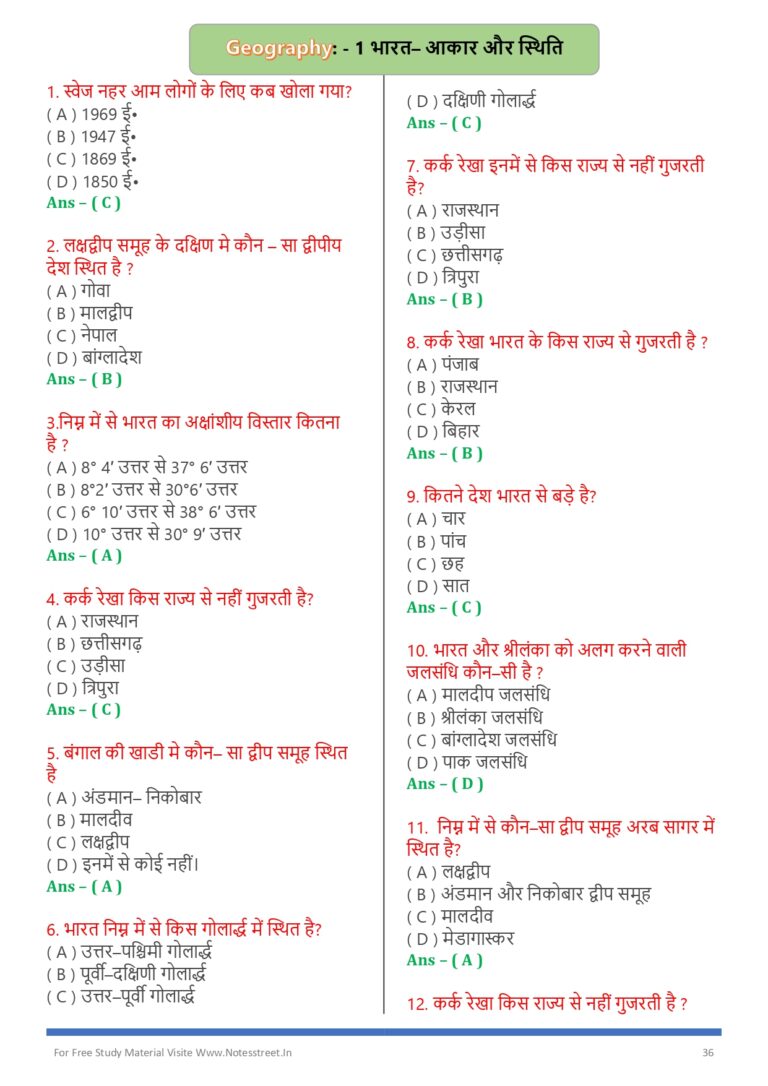 Geography: - 1 भारत– आकार और स्थिति
1. स्वेज नहर आम लोगों के लिए कब खोला गया?
( A ) 1969 ई•
( B ) 1947 ई•
( C ) 1869 ई•
( D ) 1850 ई•
Ans – ( C )
2. लक्षद्वीप समूह के दक्षिण मे कौन – सा द्वीपीय
देश स्थित है ?
( A ) गोवा
( B ) मालद्वीप
( C ) नेपाल
( D ) बांग्लादेश
Ans – ( B )
3.निम्न में से भारत का अक्षांशीय विस्तार कितना
है ?
( A ) 8° 4′ उत्तर से 37° 6′ उत्तर
( B ) 8°2′ उत्तर से 30°6′ उत्तर
( C ) 6° 10′ उत्तर से 38° 6′ उत्तर
( D ) 10° उत्तर से 30° 9′ उत्तर
Ans – ( A )
4. कर्क रेखा किस राज्य से नहीं गुजरती है?
( A ) राजस्थान
( B ) छत्तीसगढ़
( C ) उड़ीसा
( D ) त्रिपुरा
Ans – ( C )
5. बंगाल की खाडी मे कौन– सा द्वीप समूह स्थित
है
( A ) अंडमान– निकोबार
( B ) मालदीव
( C ) लक्षद्वीप
( D ) इनमें से कोई नहीं।
Ans – ( A )
6. भारत निम्न में से किस गोलार्द्ध में स्थित है?
( A ) उत्तर–पश्चिमी गोलार्द्ध
( B ) पूर्वी–दक्षिणी गोलार्द्ध
( C ) उत्तर–पूर्वी गोलार्द्ध
( D ) दक्षिणी गोलार्द्ध
Ans – ( C )
7. कर्क रेखा इनमें से किस राज्य से नहीं गुजरती
है?
( A ) राजस्थान
( B ) उड़ीसा
( C ) छत्तीसगढ़
( D ) त्रिपुरा
Ans – ( B )
8. कर्क रेखा भारत के किस राज्य से गुजरती है ?
( A ) पंजाब
( B ) राजस्थान
( C ) केरल
( D ) बिहार
Ans – ( B )
9. कितने देश भारत से बड़े है?
( A ) चार
( B ) पांच
( C ) छह
( D ) सात
Ans – ( C )
10. भारत और श्रीलंका को अलग करने वाली
जलसंधि कौन–सी है ?
( A ) मालदीप जलसंधि
( B ) श्रीलंका जलसंधि
( C ) बांग्लादेश जलसंधि
( D ) पाक जलसंधि
Ans – ( D )
11. निम्न में से कौन–सा द्वीप समूह अरब सागर में
स्थित है?
( A ) लक्षद्वीप
( B ) अंडमान और निकोबार द्वीप समूह
( C ) मालदीव
( D ) मेडागास्कर
Ans – ( A )
12. कर्क रेखा किस राज्य से नहीं गुजरती है ?
For Free Study Material Visite Www.Notesstreet.In
36